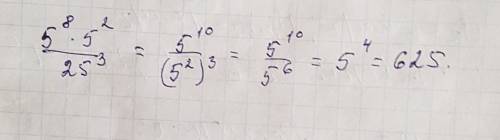 \frac{5^8 \cdot 5^2}{25^3} = \frac{5^{10}}{(5^2)^3} = \frac{5^{10}}{5^6} = 5^4 = 625.